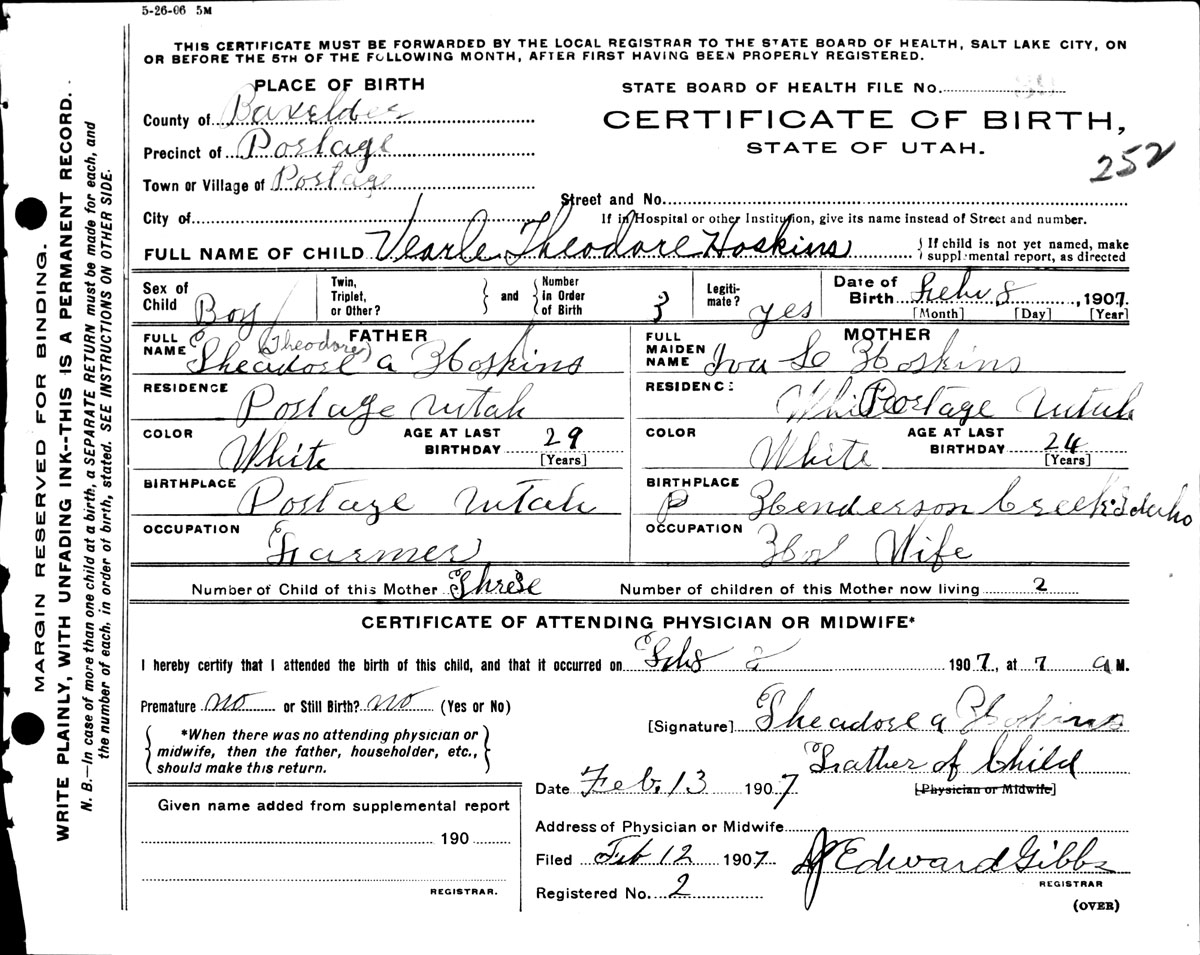 5-26-06 5M
THIS CERTIFICATE MUST BE FORWARDED BY THE LOCAL REGISTRAR TO THE STATE BOARD OF HEALTH, SALT LAKE CITY, ON
OR BEFORE THE 5TH OF THE FOLLOWING MONTH, AFTER FIRST HAVING BEEN PROPERLY REGISTERED.
PLACE OF BIRTH
County of Boxelder
Precinct of Portage
Town or Village of Portage
City of
STATE BOARD OF HEALTH FILE No.
CERTIFICATE OF BIRTH,
STATE OF UTAH.
252
Street and No.
If in Hospital or other Institution, give its name instead of Street and number.
FULL NAME OF CHILD Vearle Theodore Hoskins
If child is not yet named, make
supplemental report, as directed
Sex of Child Boy
Twin, Triplet, or Other?
and
Number in Order of Birth 3
Legitimate? yes
Date of Birth Feb 8, 1907.
[Month] [Day] [Year]
FATHER
FULL NAME Theadore (Theodore) a Hoskins
RESIDENCE Portage Utah
COLOR White
AGE AT LAST BIRTHDAY 29
[Years]
BIRTHPLACE Portage Utah
OCCUPATION Farmer
MOTHER
FULL MAIDEN NAME Iva L Hoskins
RESIDENCE White Portage Utah
COLOR White
AGE AT LAST BIRTHDAY 24
[Years]
BIRTHPLACE P Henderson Creek Idaho
OCCUPATION Hos Wife
Number of Child of this Mother Three
Number of children of this Mother now living 2
CERTIFICATE OF ATTENDING PHYSICIAN OR MIDWIFE*
I hereby certify that I attended the birth of this child, and that it occurred on Feb 8 1907, at 7 a M.
Premature no or Still Birth? no (Yes or No)
*When there was no attending physician or
midwife, then the father, householder, etc.,
should make this return.
[Signature] Theadore a Hoskins
Father of Child
[Physician or Midwife]
Date Feb. 13 1907
Address of Physician or Midwife
Filed Feb 12 1907
Edward Gibbs
REGISTRAR
Registered No. 2
(OVER)
Given name added from supplemental report
190
REGISTRAR.
MARGIN RESERVED FOR BINDING.
WRITE PLAINLY, WITH UNFADING INK--THIS IS A PERMANENT RECORD.
N. B.—In case of more than one child at a birth, a SEPARATE RETURN must be made for each, and
the number of each, in order of birth, stated. SEE INSTRUCTIONS ON OTHER SIDE.